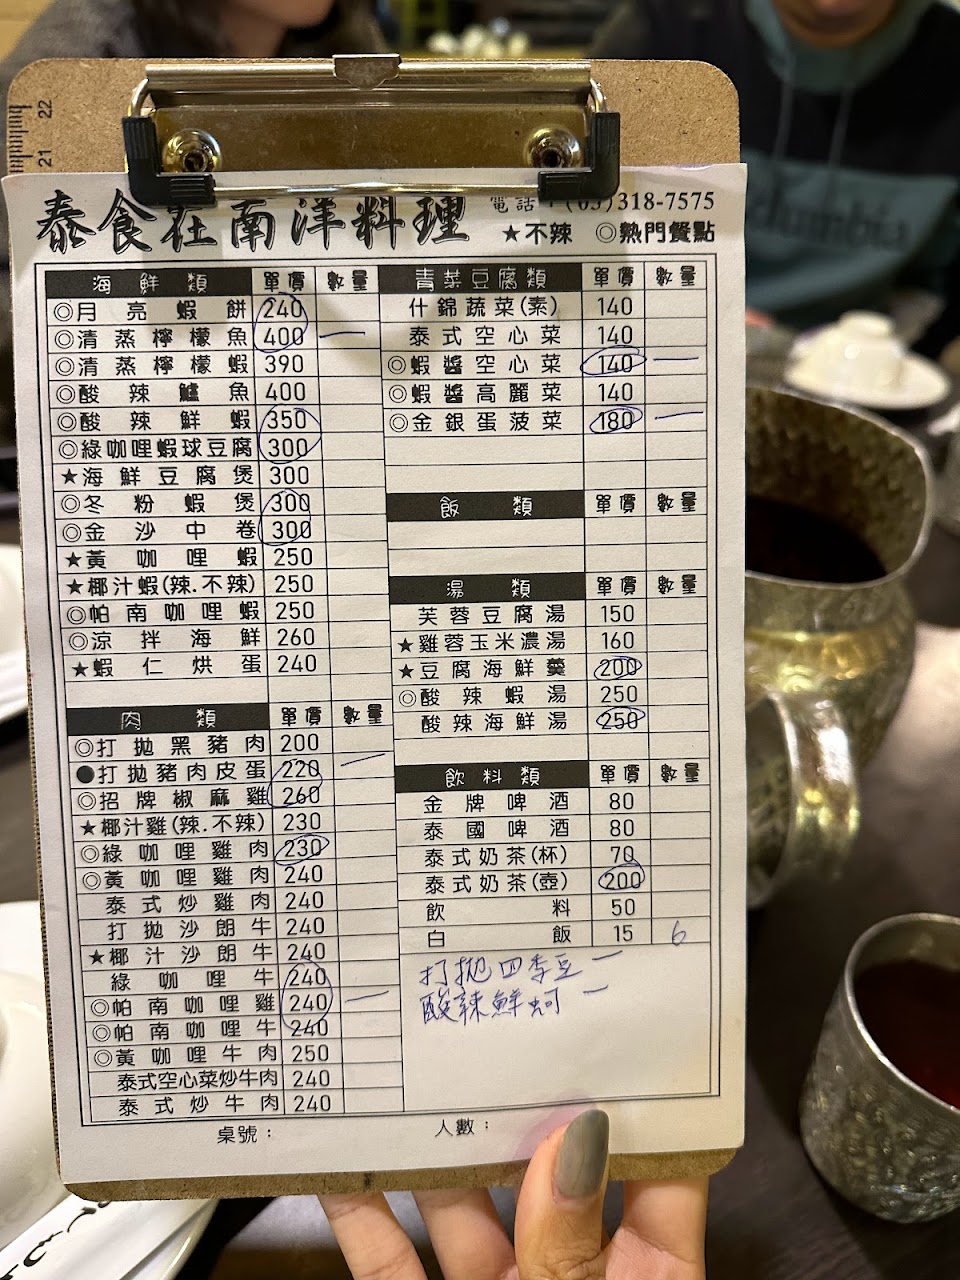 22
21
泰食在南洋料理
電話：(03)318-7575
★不辣 ◎熱門餐點
海鮮類 單價 數量
◎月亮蝦餅 240
◎清蒸檸檬魚 400 一
◎清蒸檸檬蝦 390
◎酸辣鱸魚 400
◎酸辣鮮蝦 350
◎綠咖哩蝦球豆腐 300
★海鮮豆腐煲 300
◎冬粉蝦煲 300
◎金沙中卷 300
★黃咖哩蝦 250
★椰汁蝦(辣.不辣) 250
◎帕南咖哩蝦 250
◎涼拌海鮮 260
★蝦仁烘蛋 240
肉類 單價 數量
◎打拋黑豬肉 200
●打拋豬肉皮蛋 220 一
◎招牌椒麻雞 260
★椰汁雞(辣.不辣) 230
◎綠咖哩雞肉 230
◎黃咖哩雞肉 240
泰式炒雞肉 240
打拋沙朗牛 240
★椰汁沙朗牛 240
綠咖哩牛 240
◎帕南咖哩雞 240 一
◎帕南咖哩牛 240
◎黃咖哩牛肉 250
泰式空心菜炒牛肉 240
泰式炒牛肉 240
青菜豆腐類 單價 數量
什錦蔬菜(素) 140
泰式空心菜 140
◎蝦醬空心菜 140 一
◎蝦醬高麗菜 140
◎金銀蛋菠菜 180 一
飯類 單價 數量
湯類 單價 數量
芙蓉豆腐湯 150
★雞蓉玉米濃湯 160
★豆腐海鮮羹 200
◎酸辣蝦湯 250
酸辣海鮮湯 250
飲料類 單價 數量
金牌啤酒 80
泰國啤酒 80
泰式奶茶(杯) 70
泰式奶茶(壺) 200
飲料 50
白飯 15 6
打拋四季豆 一
酸辣鮮蚵 一
桌號：
人數：
Columbia